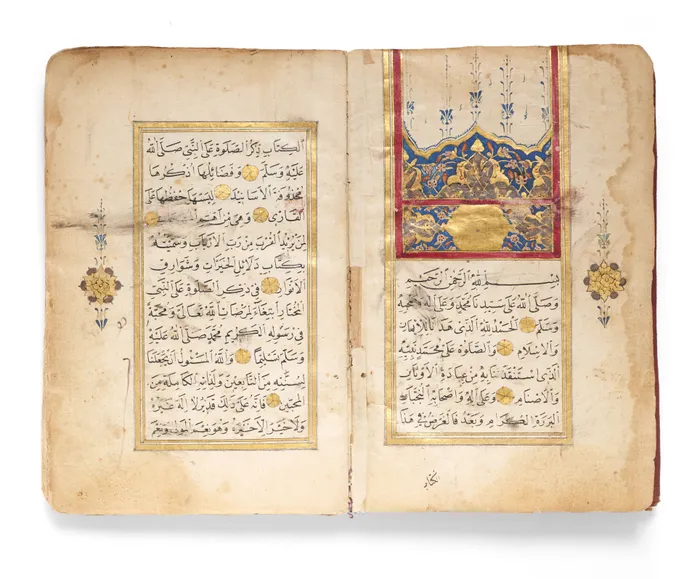 بسم الله الرحمن الرحيم
وصلى الله على سيدنا محمد وعلى اله وصحبه
وسلم الحمد لله الذى هدانا للايمان
والاسلام والصلوة على محمد نبيه
الذى استنقذنا به من عبادة الاوثان
والاصنام وعلى اله واصحابه النجباء
البررة الكرام وبعد فالغرض فى هذا
الكتاب ذكر الصلوة على النبى صلى الله
عليه وسلم وفضائلها اذكرها
محذوفة الاسانيد ليسهل حفظها على
القارى وهى من اهم
لمن يريد القرب من رب الارباب وسميته
بكتاب دلائل الخيرات وشوارق
الانوار فى ذكر الصلوة على النبى
المختار ابتغاء لمرضات الله تعالى ومحبة
فى رسوله الكريم محمد صلى الله عليه
وسلم تسليما والله المسئول ان يجعلنا
لسنته من التابعين ولذاته الكاملة من
المحبين فانه على ذلك قدير لا اله غيره
ولا خير الا خيره وهو نعم المولى ونعم